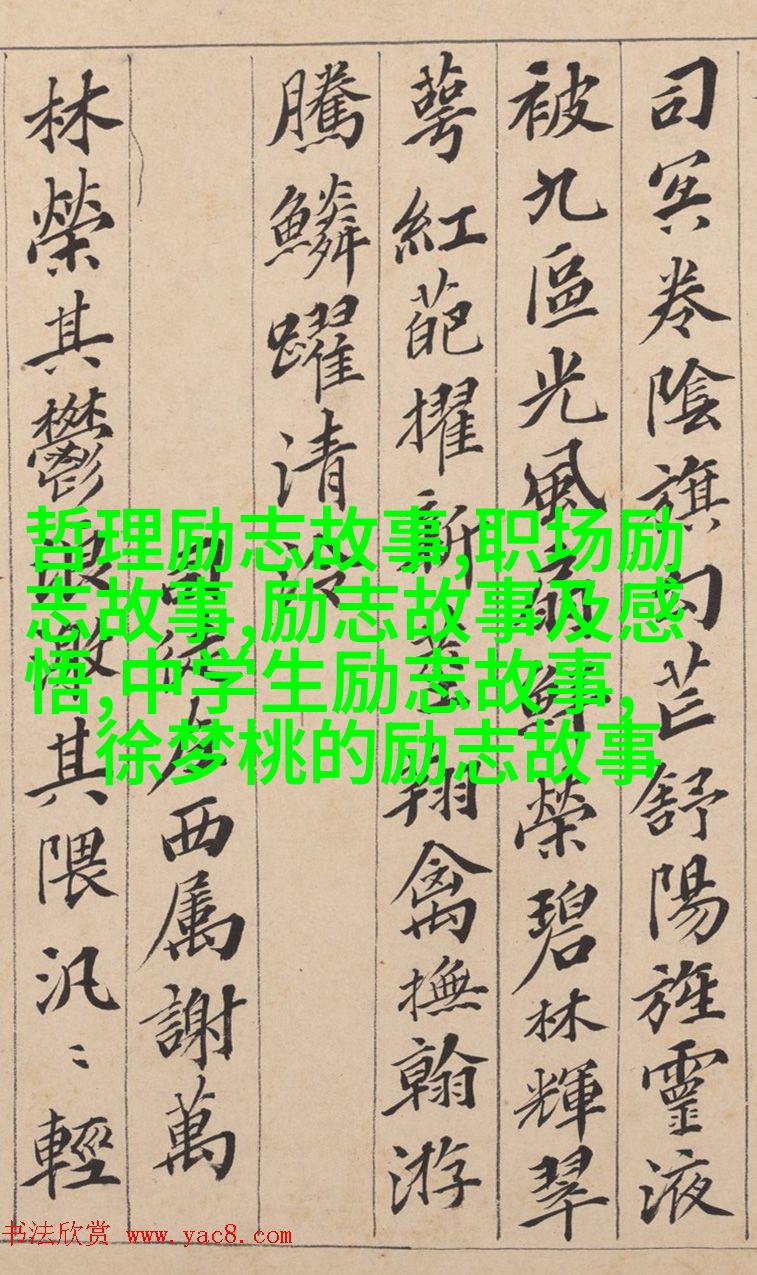 司冥卷陰旗句芒舒陽旌靈液
被九區光風扇鮮榮碧林輝翠
萼紅葩擢新莖翔禽撫翰游
騰鱗躍清泠
司徒左西属謝萬
林榮其鬱浪激其隈汎〻輕
哲理励志故事,职场励
志故事,励志故事及感
悟,中学生励志故事,
徐梦桃的励志故事
书法欣赏 www.yac8.com